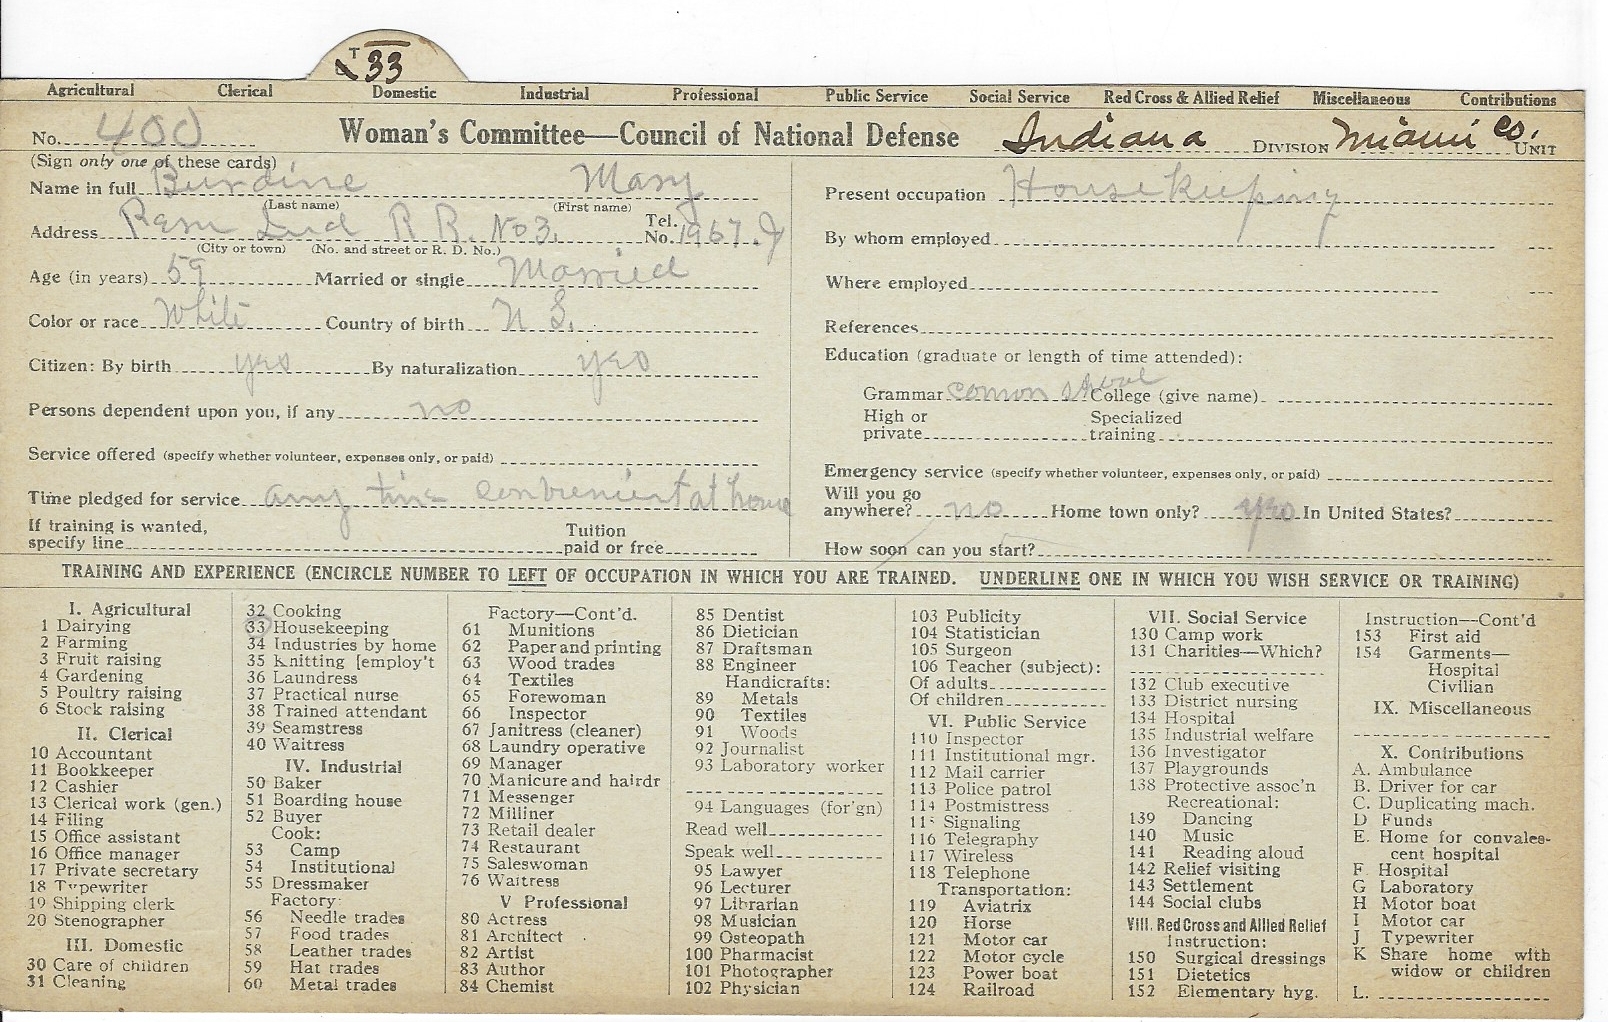 T 33
Agricultural Clerical Domestic Industrial Professional Public Service Social Service Red Cross & Allied Relief Miscellaneous Contributions
No. 400 Woman's Committee—Council of National Defense Indiana DIVISION Miami Co. UNIT
(Sign only one of these cards)
Name in full Burdine Mary
(Last name) (First name)
Address Ind R R. No 3. Tel. No. 1967.J
(City or town) (No. and street or R. D. No.)
Age (in years) 59 Married or single Married
Color or race White Country of birth S.
Citizen: By birth yes By naturalization yes
Persons dependent upon you, if any no
Service offered (specify whether volunteer, expenses only, or paid)
Time pledged for service any time convenient at home
If training is wanted,
specify line Tuition paid or free
Present occupation Housekeeping
By whom employed
Where employed
References
Education (graduate or length of time attended):
Grammar comon school College (give name)
High or private Specialized training
Emergency service (specify whether volunteer, expenses only, or paid)
Will you go
anywhere? no Home town only? yes In United States?
How soon can you start?
TRAINING AND EXPERIENCE (ENCIRCLE NUMBER TO LEFT OF OCCUPATION IN WHICH YOU ARE TRAINED. UNDERLINE ONE IN WHICH YOU WISH SERVICE OR TRAINING)
I. Agricultural
1 Dairying
2 Farming
3 Fruit raising
4 Gardening
5 Poultry raising
6 Stock raising
II. Clerical
10 Accountant
11 Bookkeeper
12 Cashier
13 Clerical work (gen.)
14 Filing
15 Office assistant
16 Office manager
17 Private secretary
18 Typewriter
19 Shipping clerk
20 Stenographer
III. Domestic
30 Care of children
31 Cleaning
32 Cooking
33 Housekeeping
34 Industries by home
35 Knitting [employ't
36 Laundress
37 Practical nurse
38 Trained attendant
39 Seamstress
40 Waitress
IV. Industrial
50 Baker
51 Boarding house
52 Buyer
Cook:
53 Camp
54 Institutional
55 Dressmaker
Factory:
56 Needle trades
57 Food trades
58 Leather trades
59 Hat trades
60 Metal trades
Factory—Cont'd.
61 Munitions
62 Paper and printing
63 Wood trades
64 Textiles
65 Forewoman
66 Inspector
67 Janitress (cleaner)
68 Laundry operative
69 Manager
70 Manicure and hairdr
71 Messenger
72 Milliner
73 Retail dealer
74 Restaurant
75 Saleswoman
76 Waitress
V Professional
80 Actress
81 Architect
82 Artist
83 Author
84 Chemist
85 Dentist
86 Dietician
87 Draftsman
88 Engineer
Handicrafts:
89 Metals
90 Textiles
91 Woods
92 Journalist
93 Laboratory worker
94 Languages (for'gn)
Read well
Speak well
95 Lawyer
96 Lecturer
97 Librarian
98 Musician
99 Osteopath
100 Pharmacist
101 Photographer
102 Physician
103 Publicity
104 Statistician
105 Surgeon
106 Teacher (subject):
Of adults
Of children
VI. Public Service
110 Inspector
111 Institutional mgr.
112 Mail carrier
113 Police patrol
114 Postmistress
115 Signaling
116 Telegraphy
117 Wireless
118 Telephone
Transportation:
119 Aviatrix
120 Horse
121 Motor car
122 Motor cycle
123 Power boat
124 Railroad
VII. Social Service
130 Camp work
131 Charities—Which?
132 Club executive
133 District nursing
134 Hospital
135 Industrial welfare
136 Investigator
137 Playgrounds
138 Protective assoc'n
Recreational:
139 Dancing
140 Music
141 Reading aloud
142 Relief visiting
143 Settlement
144 Social clubs
VIII. Red Cross and Allied Relief
Instruction:
150 Surgical dressings
151 Dietetics
152 Elementary hyg.
Instruction—Cont'd
153 First aid
154 Garments—
Hospital
Civilian
IX. Miscellaneous
X. Contributions
A. Ambulance
B. Driver for car
C. Duplicating mach.
D Funds
E. Home for convales-
cent hospital
F. Hospital
G Laboratory
H Motor boat
I Motor car
J Typewriter
K Share home with
widow or children
L.